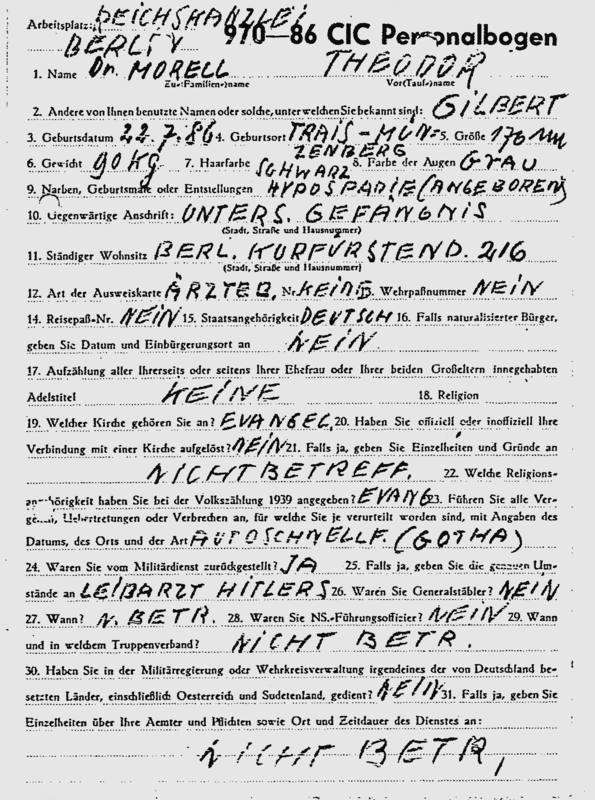 Arbeitsplatz: REICHSKANZLEI
BERLIN 970—86 CIC Personalbogen
1. Name Dr. MORELL THEODOR
Zu-(Familien-)name Vor(Tauf-)name
2. Andere von Ihnen benutzte Namen oder solche, unter welchen Sie bekannt sind: GILBERT
3. Geburtsdatum 22.7.86 4. Geburtsort TRAIS-MÜN= 5. Größe 176
ZENBERG
6. Gewicht 90 KG 7. Haarfarbe SCHWARZ 8. Farbe der Augen GRAU
9. Narben, Geburtsmale oder Entstellungen HYPOSPADIE (ANGEBOREN)
10. Gegenwärtige Anschrift: UNTERS. GEFÄNGNIS
(Stadt, Straße und Hausnummer)
11. Ständiger Wohnsitz BERL. KURFÜRSTEND. 216
(Stadt, Straße und Hausnummer)
12. Art der Ausweiskarte ÄRZTEB. Nr. KEINE Wehrpaßnummer NEIN
14. Reisepaß-Nr. NEIN 15. Staatsangehörigkeit DEUTSCH 16. Falls naturalisierter Bürger,
geben Sie Datum und Einbürgerungsort an NEIN
17. Aufzählung aller Ihrerseits oder seitens Ihrer Ehefrau oder Ihrer beiden Großeltern innegehabten
Adelstitel KEINE 18. Religion
19. Welcher Kirche gehören Sie an? EVANGEL. 20. Haben Sie offiziell oder inoffiziell Ihre
Verbindung mit einer Kirche aufgelöst? NEIN 21. Falls ja, geben Sie Einzelheiten und Gründe an
NICHT BETREFF. 22. Welche Religions-
angehörigkeit haben Sie bei der Volkszählung 1939 angegeben? EVANG 23. Führen Sie alle Ver-
gehen, Uebertretungen oder Verbrechen an, für welche Sie je verurteilt worden sind, mit Angaben des
Datums, des Orts und der Art AUTOSCHNELLF. (GOTHA)
24. Waren Sie vom Militärdienst zurückgestellt? JA 25. Falls ja, geben Sie die genauen Um-
stände an LEIBARZT HITLERS 26. Waren Sie Generalstäbler? NEIN
27. Wann? N. BETR. 28. Waren Sie NS.-Führungsoffizier? NEIN 29. Wann
und in welchem Truppenverband? NICHT BETR.
30. Haben Sie in der Militärregierung oder Wehrkreisverwaltung irgendeines der von Deutschland be-
setzten Länder, einschließlich Oesterreich und Sudetenland, gedient? NEIN 31. Falls ja, geben Sie
Einzelheiten über Ihre Aemter und Pflichten sowie Ort und Zeitdauer des Dienstes an:
NICHT BETR,